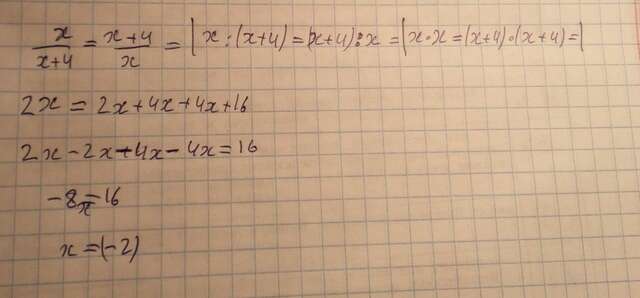 x/(x+4) = (x+4)/x = | x : (x+4) = (x+4) : x = | x·x = (x+4)·(x+4) = |
2x = 2x+4x+4x+16
2x-2x-4x-4x=16
-8x=16
x=(-2)